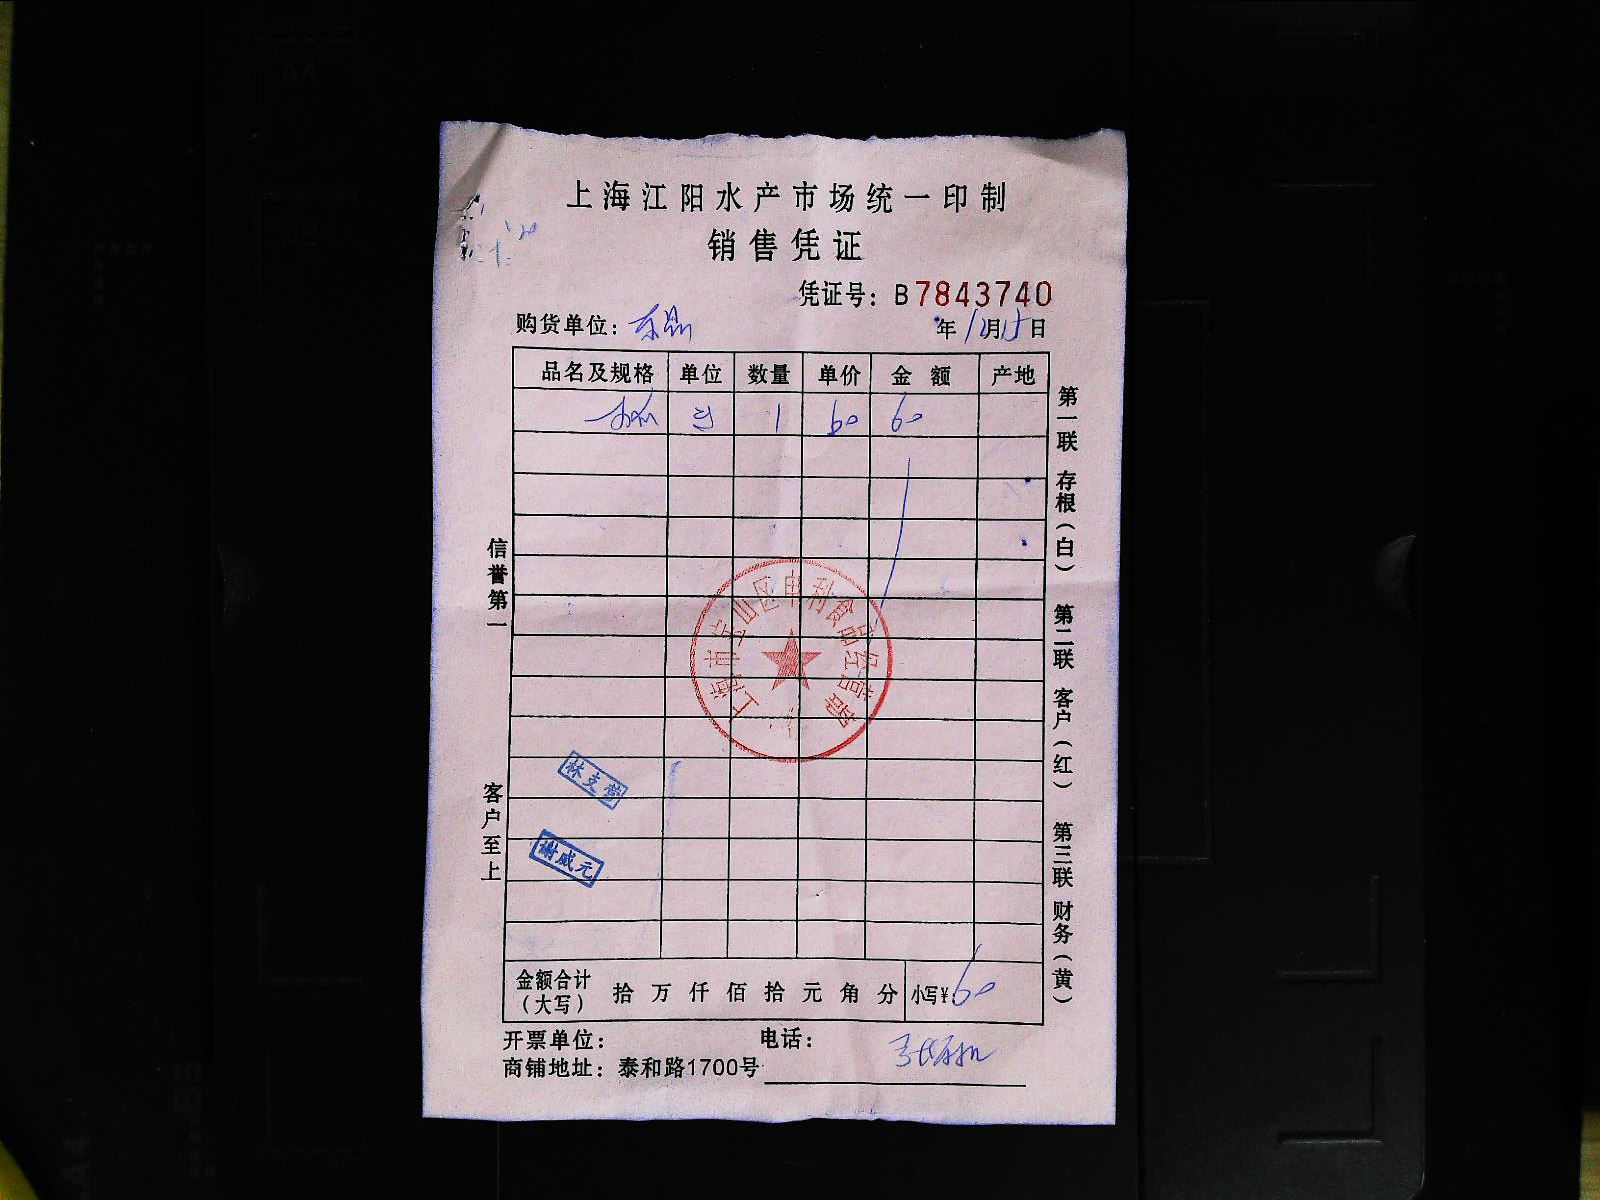 上海江阳水产市场统一印制
销售凭证
凭证号：B7843740
购货单位：
年12月15日
品名及规格 单位 数量 单价 金额 产地
1 60 60
信誉第一
客户至上
第一联 存根（白） 第二联 客户（红） 第三联 财务（黄）
上海市宝山区申利食品经营部
谢咸元
金额合计（大写） 拾万仟佰拾元角分 小写¥60
开票单位： 电话：
商铺地址：泰和路1700号